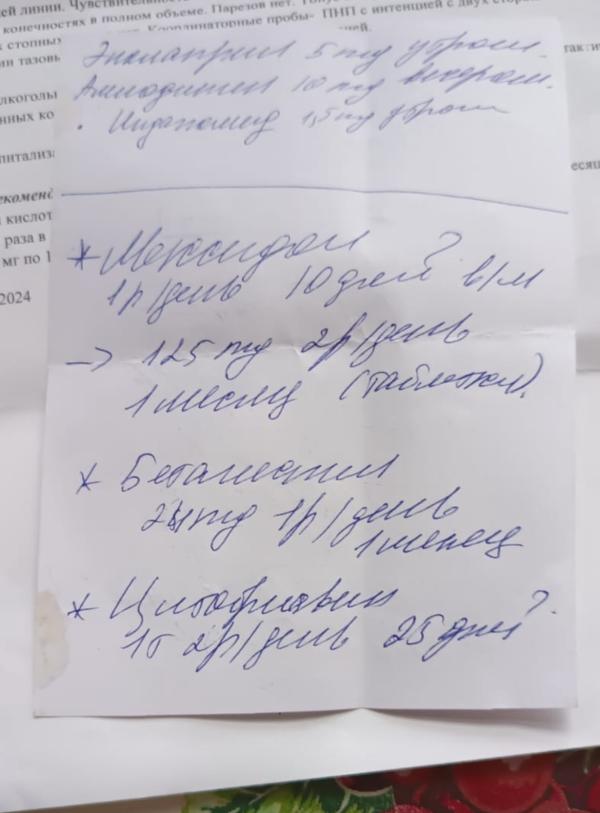 ей линии. Чувствительность
конечностях в полном объеме. Парезов нет. Тонус
х стопных Координаторные пробы- ПНП с интенцией с двух сторон
ии тазовы
лкоголь
нных ко
питализа
екоменд
кислот
раза в
мг по 1
2024
так
месяц
Эналаприл 5 mg утром.
Амлодипин 10 mg вечером.
• Индапамид 1,5 mg утром
* Мексидол ?
1р/день 10 дней в/м
→ 125 mg 2р/день
1 месяц (таблетки).
* Бетагистин
24 mg 1р/день
1 месяц
* Цитофлавин ?
1т 2р/день 25 дней